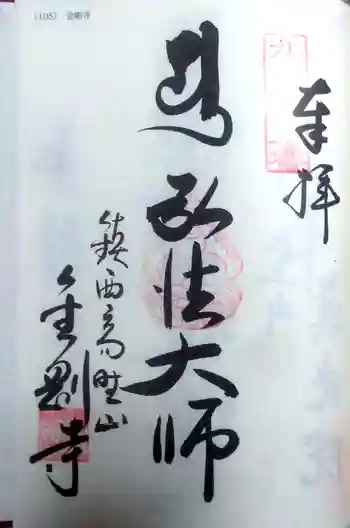 (105) 金剛寺
奉拝
弘法大師
鎮西高野山
金剛寺